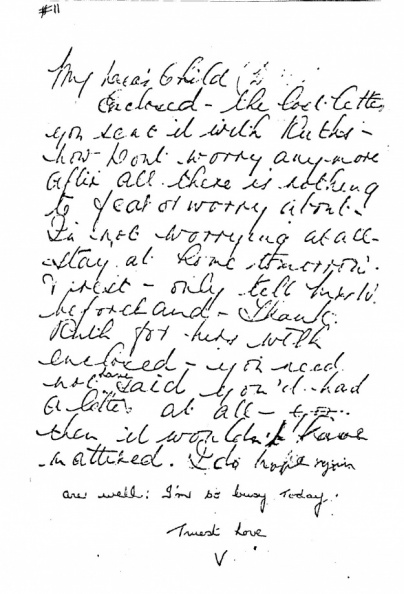 #11
My Child
Enclosed - the lost letter
you sent it with Ruth's -
now dont worry anymore
after all there is nothing
to fear or worry about -
I'm not worrying at all -
stay at home tomorrow.
& rest - only tell Mrs W.
beforehand - Thank
Ruth for hers with
enclosed - you need
not have said you'd had
a letter at all -
then it wouldn't have
mattered. I do hope again
are well: I'm so busy Today.
Truest Love
V